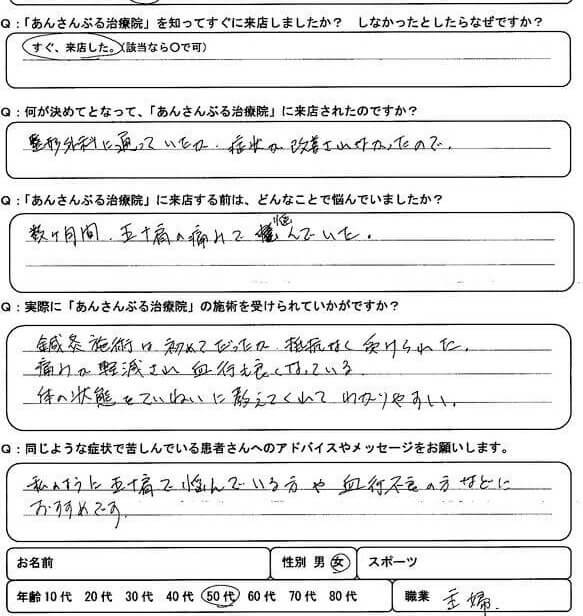 Q：「あんさんぶる治療院」を知ってすぐに来店しましたか？　しなかったとしたらなぜですか？
すぐ、来店した。（該当なら〇で可）
Q：何が決めてとなって、「あんさんぶる治療院」に来店されたのですか？
整形外科に通っていたが、症状が改善されなかったので。
Q：「あんさんぶる治療院」に来店する前は、どんなことで悩んでいましたか？
数ヶ月間、五十肩の痛みで悩んでいた。
Q：実際に「あんさんぶる治療院」の施術を受けられていかがですか？
鍼灸施術は初めてだったが、抵抗なく受けられた。
痛みが軽減され血行も良くなっている。
体の状態をていねいに教えてくれてわかりやすい。
Q：同じような症状で苦しんでいる患者さんへのアドバイスやメッセージをお願いします。
私のように五十肩で悩んでいる方や血行不良の方などに
おすすめです。
お名前　性別 男 女　スポーツ
年齢 10代　20代　30代　40代　50代　60代　70代　80代　職業　主婦